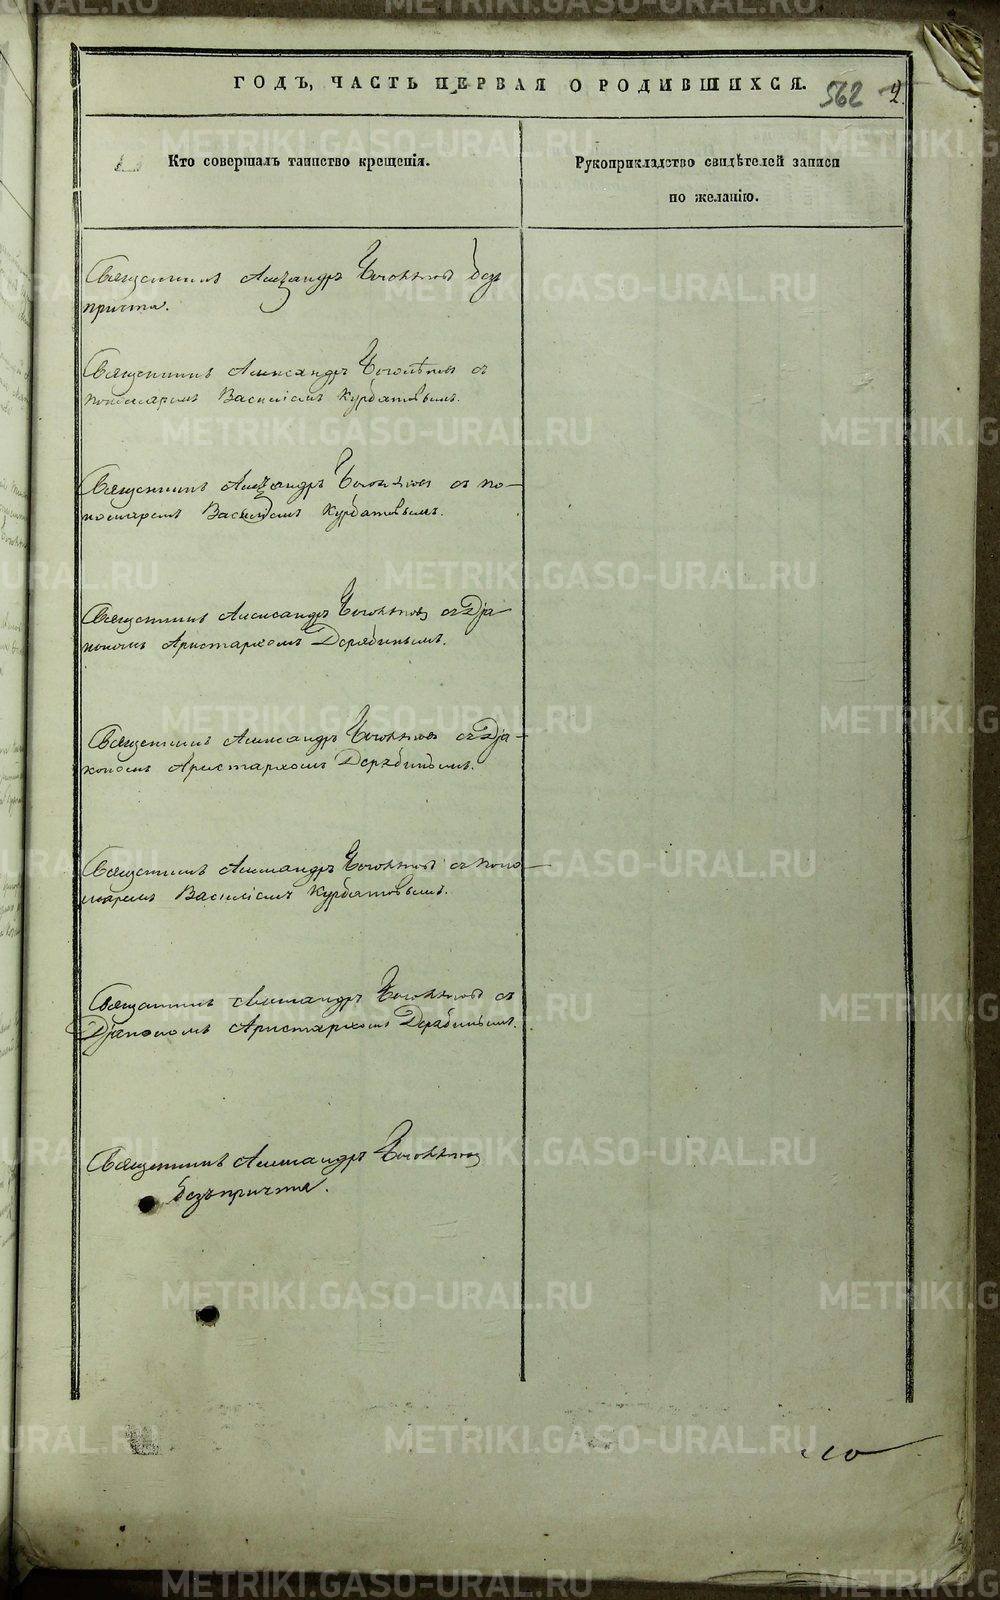 ГОДЪ, ЧАСТЬ ПЕРВАЯ О РОДИВШИХСЯ.
562 2.
Кто совершалъ таинство крещенія.
Рукоприкладство свидѣтелей записи
по желанію.
Священникъ Александръ безъ
причта.
Священникъ Александръ съ
пономаремъ Василіемъ Курбатовымъ.
Священникъ Александръ съ по-
номаремъ Василіемъ Курбатовымъ.
Священникъ Александръ съ Дja-
кономъ Аристархомъ Дерябинымъ.
Священникъ Александръ съ Дja-
кономъ Аристархомъ Дерябинымъ.
Священникъ Александръ съ поно-
маремъ Василіемъ Курбатовымъ.
Священникъ Александръ съ
Дjакономъ Аристархомъ Дерябинымъ.
Священникъ Александръ
безъ причта.
METRIKI.GASO-URAL.RU